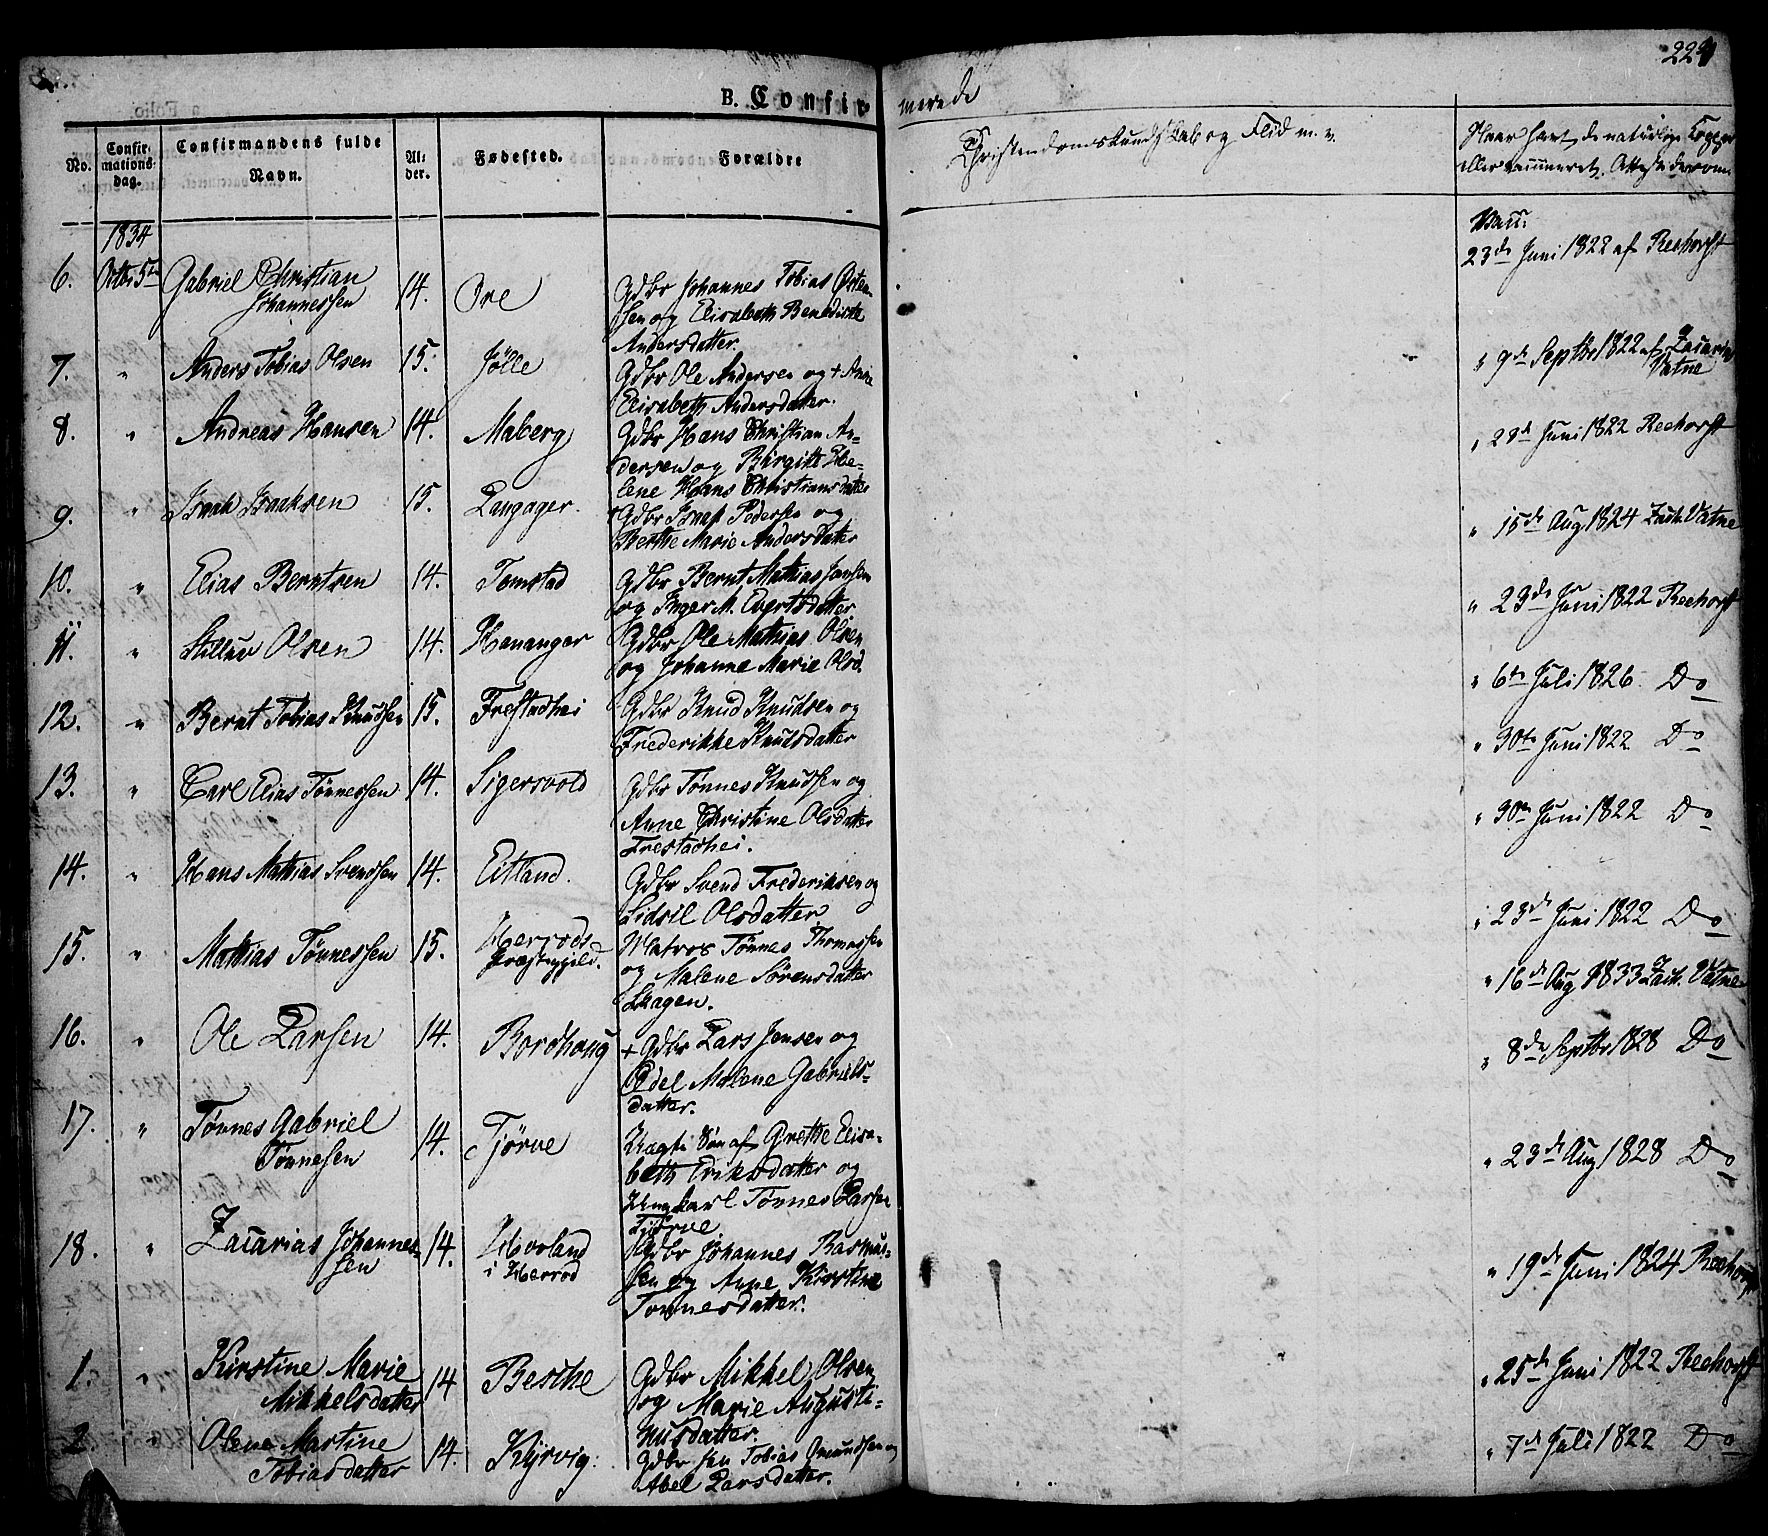 B. Confir
merede
224
No.
Confir-
mations-
dag.
Confirmandens fulde
Navn.
Al-
der.
Fødested.
Forældre
Christendomskundskab og Flid m. v.
Haver havt de naturlige Kopper
eller vaccineret. Attester derom
1834
6. Octbr 5te Gabriel Christian
Johannessen
14. Ore
Gdbr Johannes Tobias
sen og Elisabeth Benedicte
Andersdatter.
Vacc.
23de Juni 1822 af Reehorst
7. " Anders Tobias Olsen 15. Jølle
Gdbr Ole Andersen og + Ane
Elisabeth Andersdatter.
" 9de Septbr 1822 af Zacarias
Vatne
8. " Andreas Hansen 14. Maberg
Gdbr Hans Christian An-
dersen og Birgitte
lene Hans Christiansdatter
" 29de Juni 1822 Reehorst
9. " Isaak Isaaksen 15. Langager.
+ Gdbr Isaak Pedersen og
Berthe Marie Andersdatter
" 15de Aug 1824 Zach. Vatne
10. " Elias Berntsen 14. Tomstad
Gdbr Bernt Mathias Jansen
og Inger M. Evertsdatter
" 23de Juni 1822 Reehorst
11. " Stillav Olsen 14. Hananger
Gdbr Ole Mathias Olsen
og Johanne Marie Olsd.
" 6te Juli 1826 Do
12. " Bernt Tobias Knudsen 15. Frestadhei
Gdbr Knud Knudsen og
Frederikke Knutsdatter
" 30te Juni 1822 Do
13. " Carl Elias Tønnessen 14. Sigersvold
Gdbr Tønnes Knudsen og
Anne Christine Olsdatter
Frestadhei.
" 30te Juni 1822 Do
14. " Hans Mathias Svendsen 14. Eitland.
Gdbr Svend Frederiksen og
Sidsil Olsdatter
" 23de Juni 1822 Do
15. " Mathias Tønnessen 15. Herrods
Præstegjeld.
Matros Tønnes Thomassen
og Malene Sørensdatter
Skagen.
" 16de Aug 1833 Zach. Vatne
16. " Ole Larsen 14. Bordhoug
+ Gdbr Lars Jensen og
Edel Malene Gabriels-
datter.
" 8de Septbr 1828 Do
17. " Tønnes Gabriel
Tønnesen
14. Tjørve
Uægte Søn af Grethe Elisa-
beth Eriksdatter og
Ungkarl Tønnes Larsen
Tjørve
" 23de Aug 1828 Do
18. " Zacarias Johannes-
sen
14. Hovland
i Herrod
Gdbr Johannes Rasmus-
sen og Anne Kirstine
Tønnesdatter.
" 19de Juni 1824 Reehorst
1. " Kirstine Marie
Mikkelsdatter
14 Besthe
Gdbr Mikkel Olsen
og Marie Augusti-
nusdatter.
" 25de Juni 1822 Reehorst
2 " Olene Martine
Tobiasdatter
14. Kjørvig.
Gdbr Jen Tobias Omundsen og
Abel Larsdatter.
" 7de Juli 1822 Do